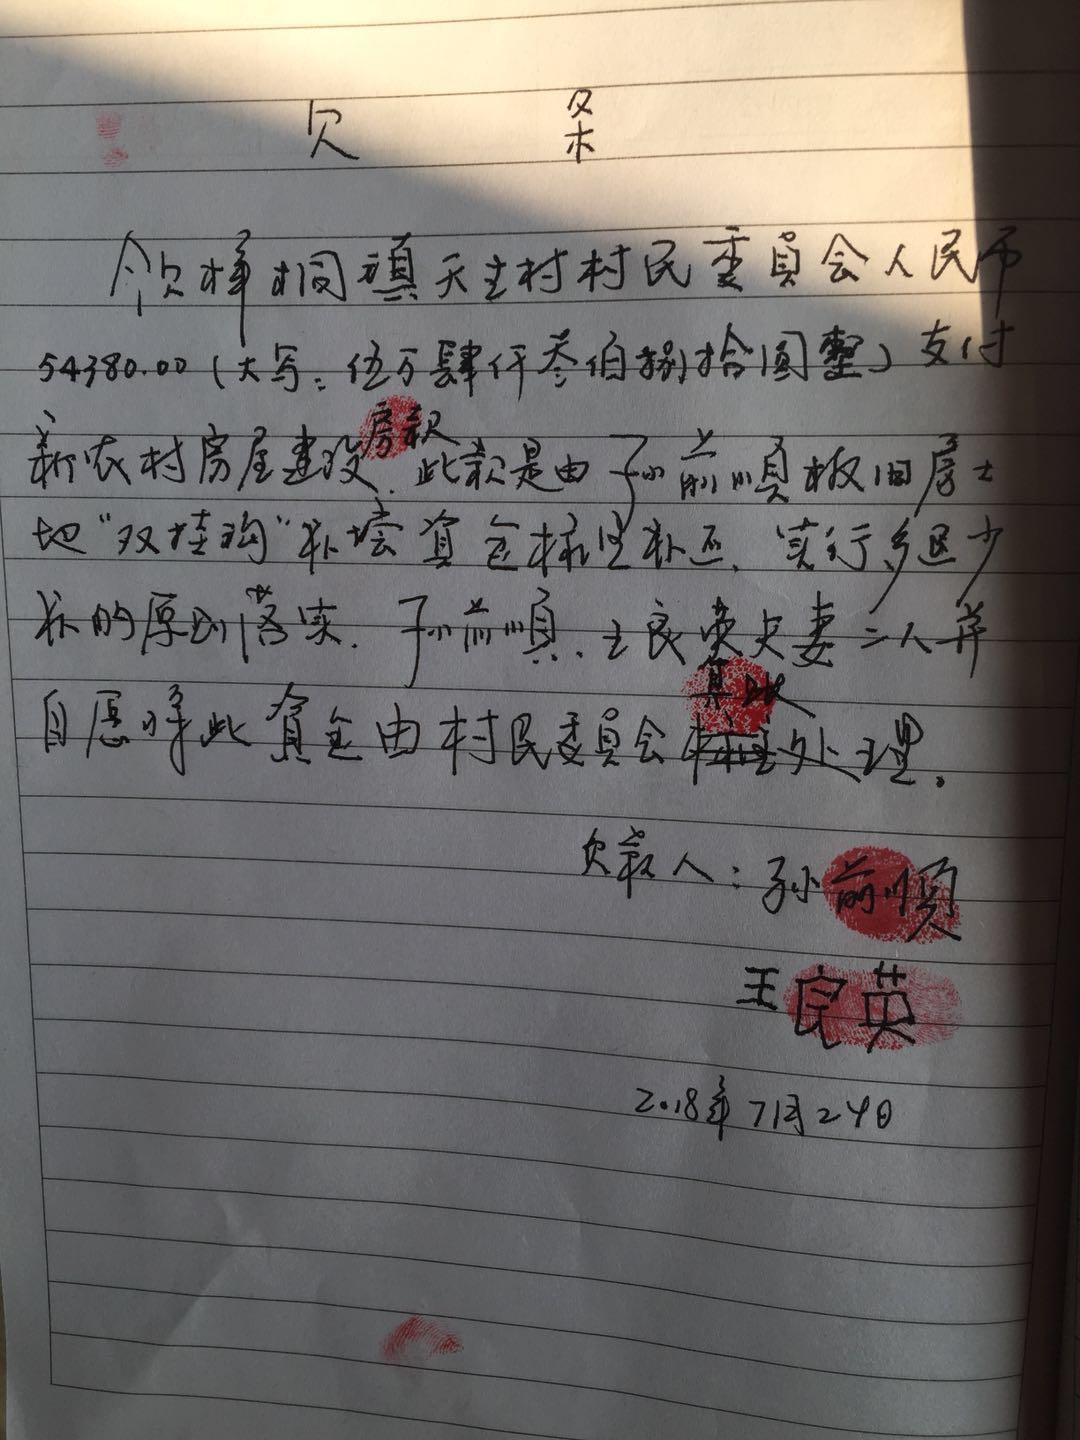 欠 条
今欠梓桐镇天主村村民委员会人民币
54380.00（大写：伍万肆仟叁佰捌拾圆整）支付
新农村房屋建设房款.此款是由孙前顺板旧房土
地“双挂钩”补偿资金抵还，实行多退少
补的原则落实.孙前顺.王良英夫妻二人并
自愿将此资金由村民委员会处理。
欠款人：孙前顺
王良英
2018年7月24日